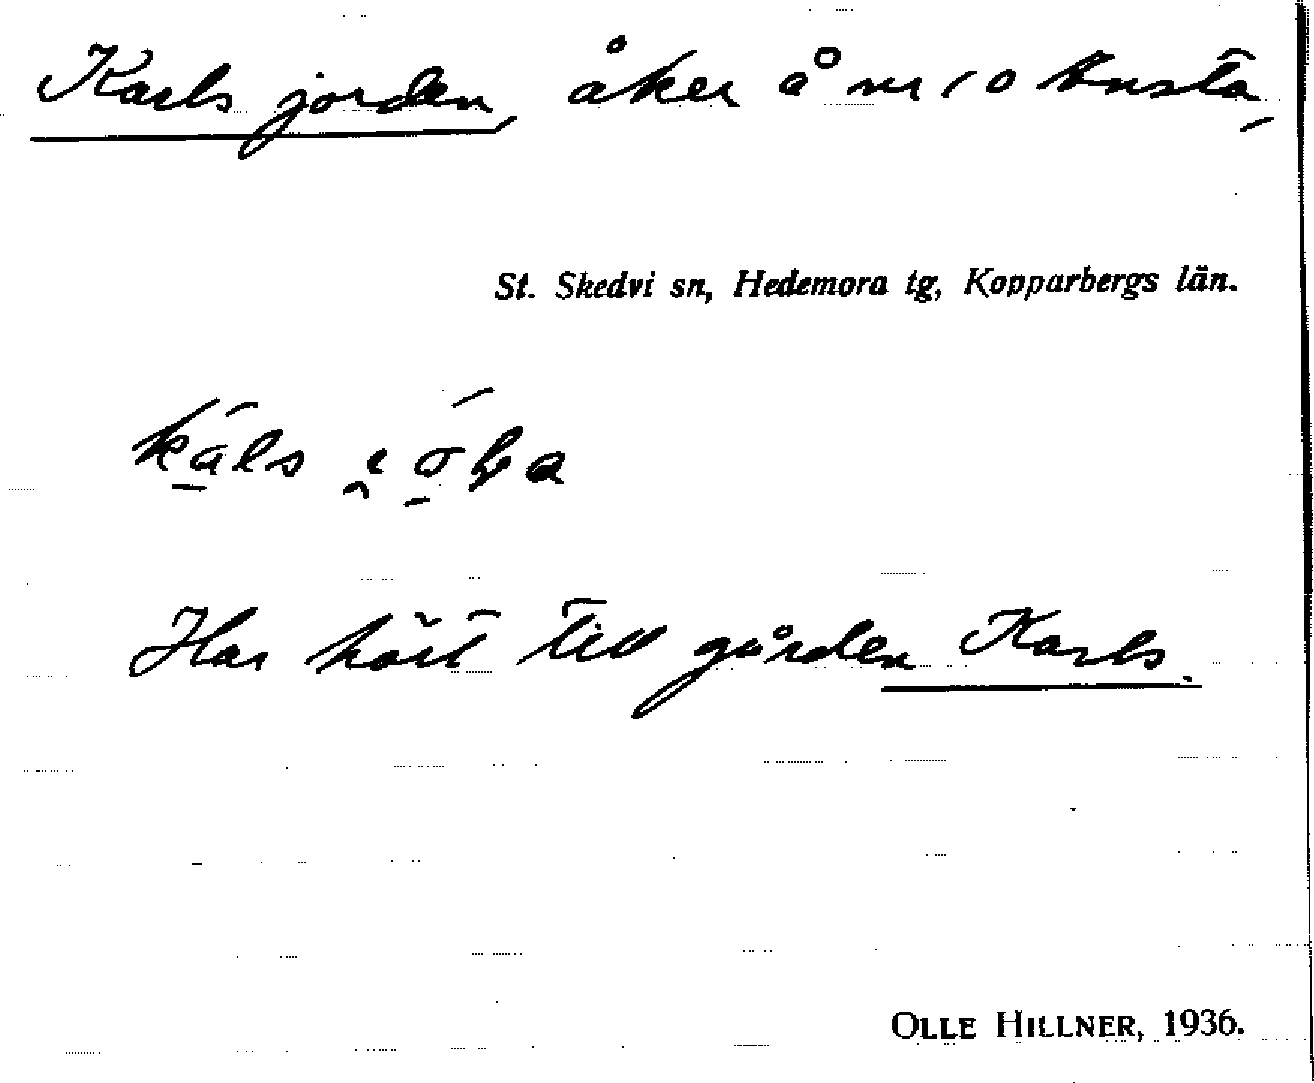 Karls jorden, åker å nr 10 Knusta,
St. Skedvi sn, Hedemora tg, Kopparbergs län.
Har hört till gården Karls.
OLLE HILLNER, 1936.